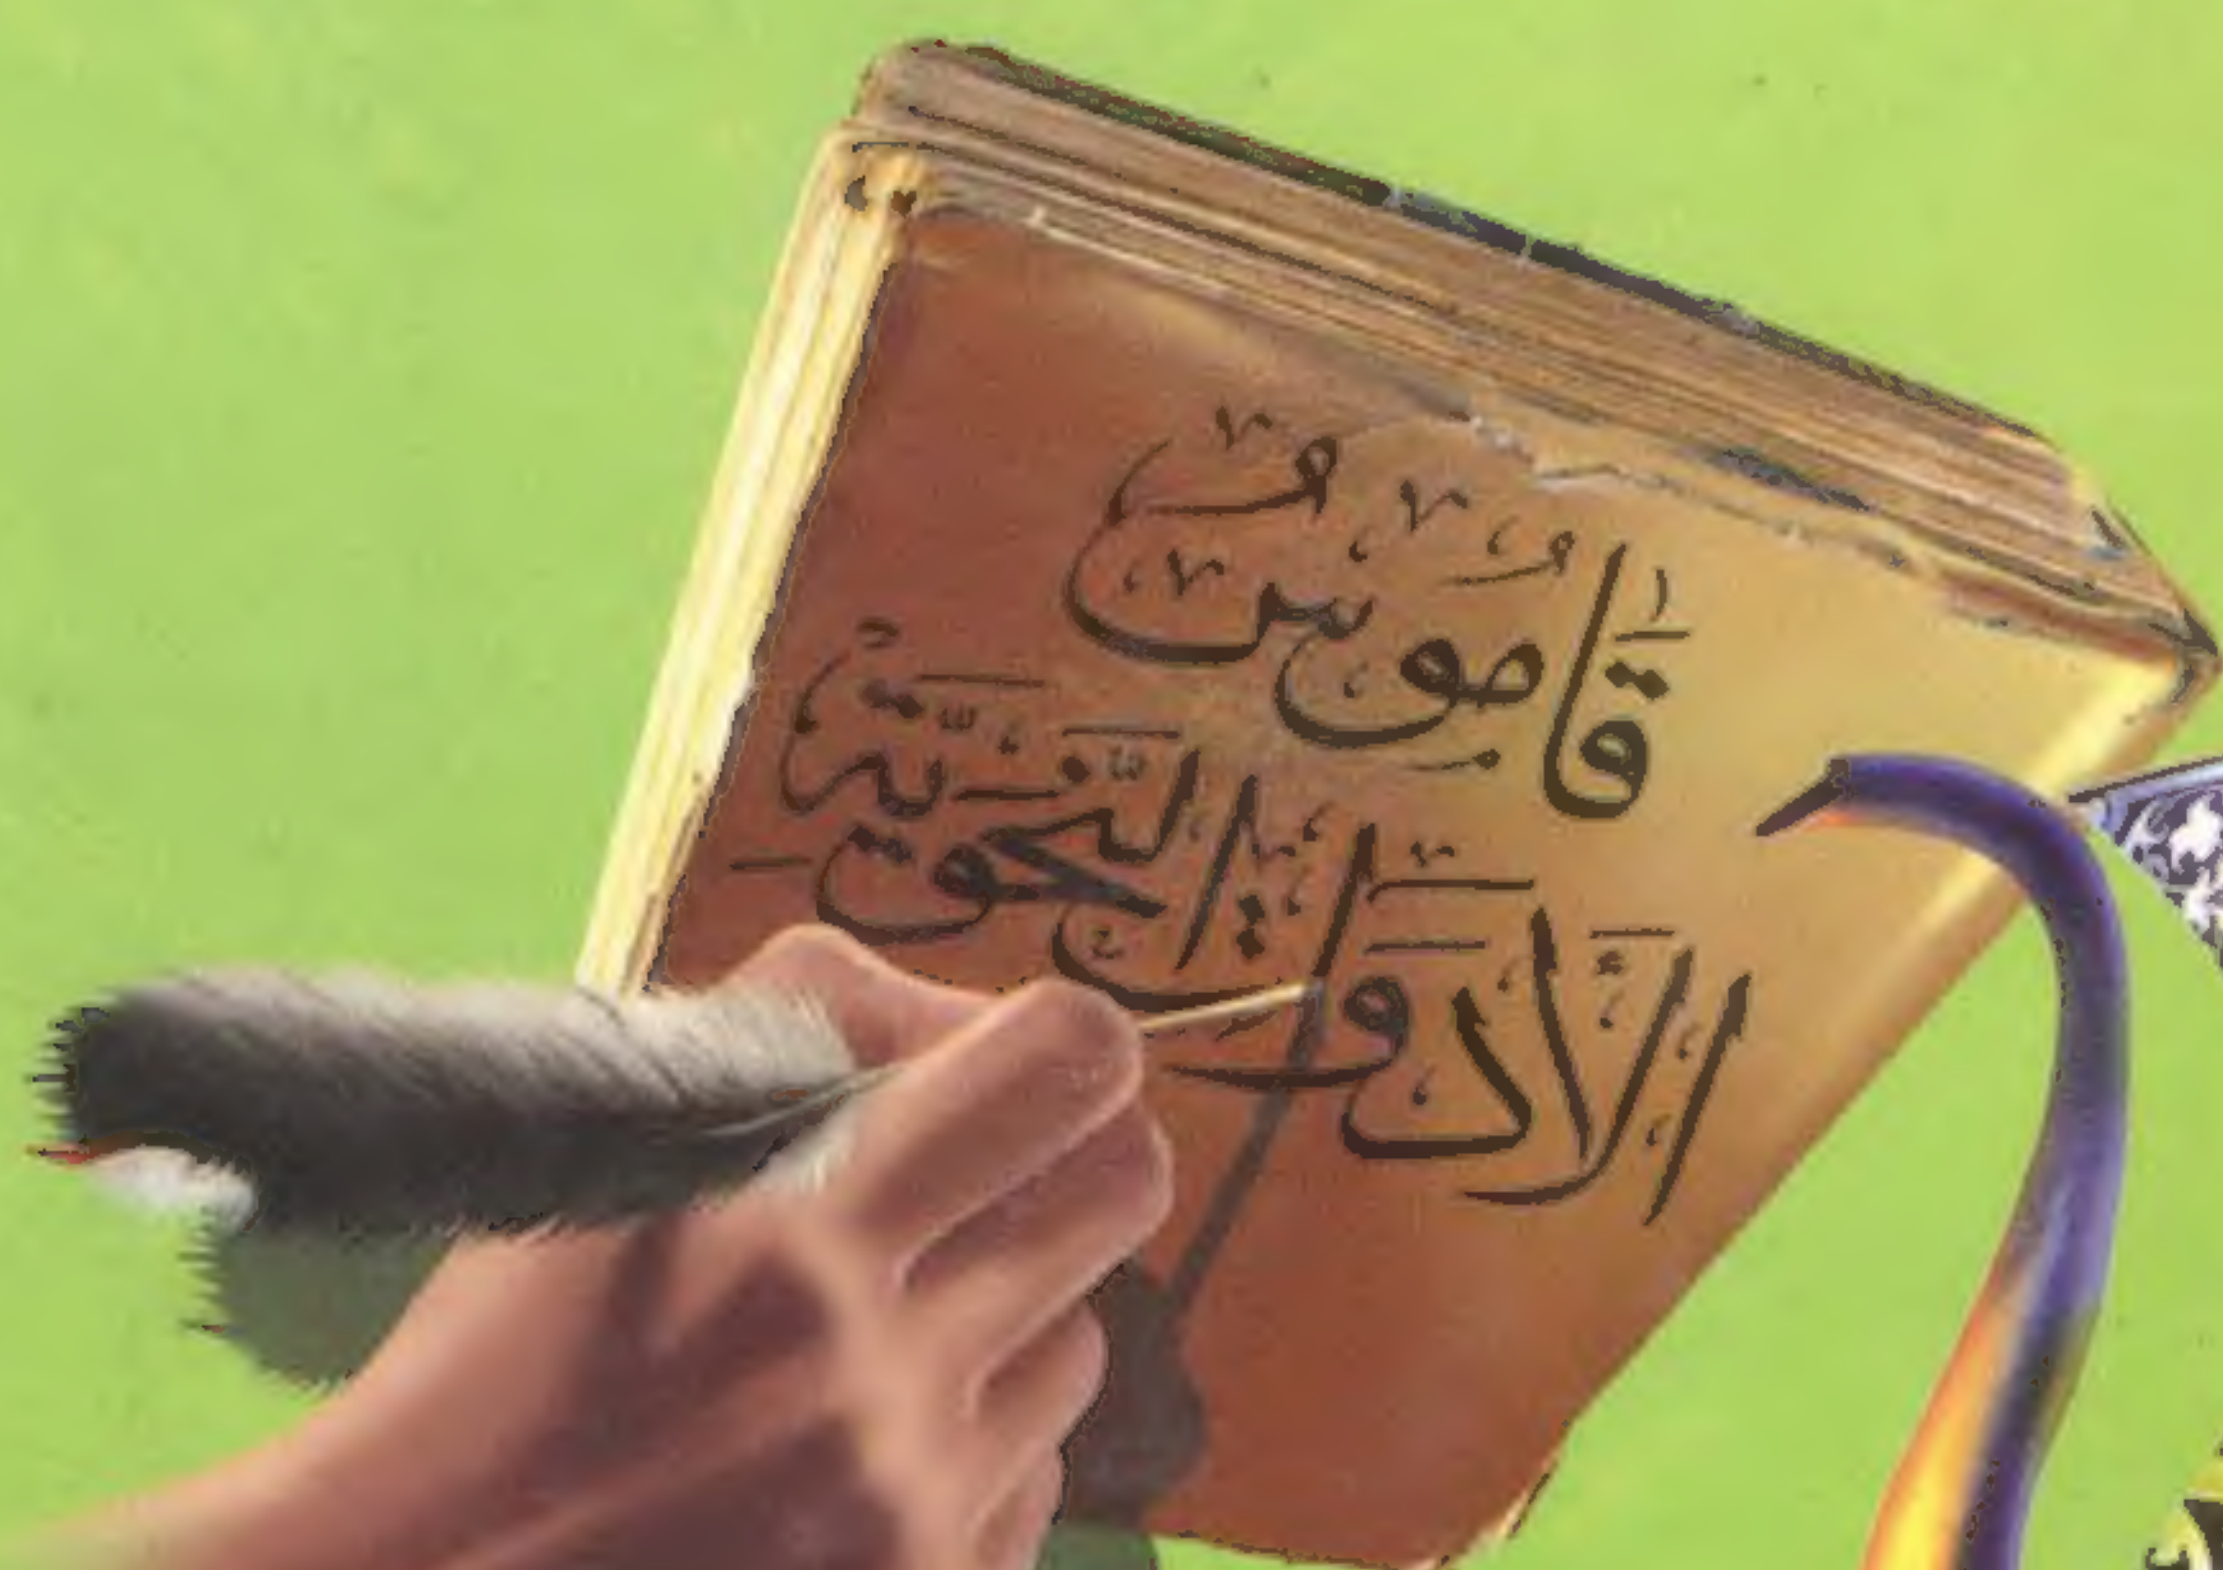 قَامُوسُ
الأَدَوَاتِ النَّحْوِيَّةِ